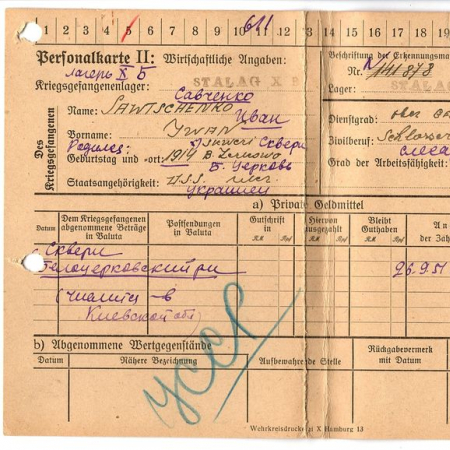 1 2 3 4 5 6 7 8 9 10 11 12 13 14 15 16 17 18 19
611
Personalkarte II: Wirtschaftliche Angaben:
Beschriftung der Erkennungsma
лагерь X Б
Nr. 141878
Kriegsgefangenenlager: STALAG X B
Lager: STALAG
Савченко
Des Kriegsgefangenen
Name: SAWTSCHENKO
Dienstgrad:
Иван
Vorname: IWAN
Zivilberuf: Schlosser
слеса
Geburtstag und -ort: 1914
Б. Церковь
Grad der Arbeitsfähigkeit:
Staatsangehörigkeit:
украинец
a) Private Geldmittel
Datum
Dem Kriegsgefangenen abgenommene Beträge in Valuta
Postsendungen in Valuta
Gutschrift in
R.M. Rpf
Hiervon ausgezahlt
R.M. Rpf
Bleibt Guthaben
R.M. Rpf
An
der Jahr
с. Сквери
Белоцерковский р-н
26.9.51
Киевской обл
УССР
b) Abgenommene Wertgegenstände
Datum
Nähere Bezeichnung
Aufbewahrende Stelle
Rückgabevermerk mit Datum
Wehrkreisdruckerei X Hamburg 13